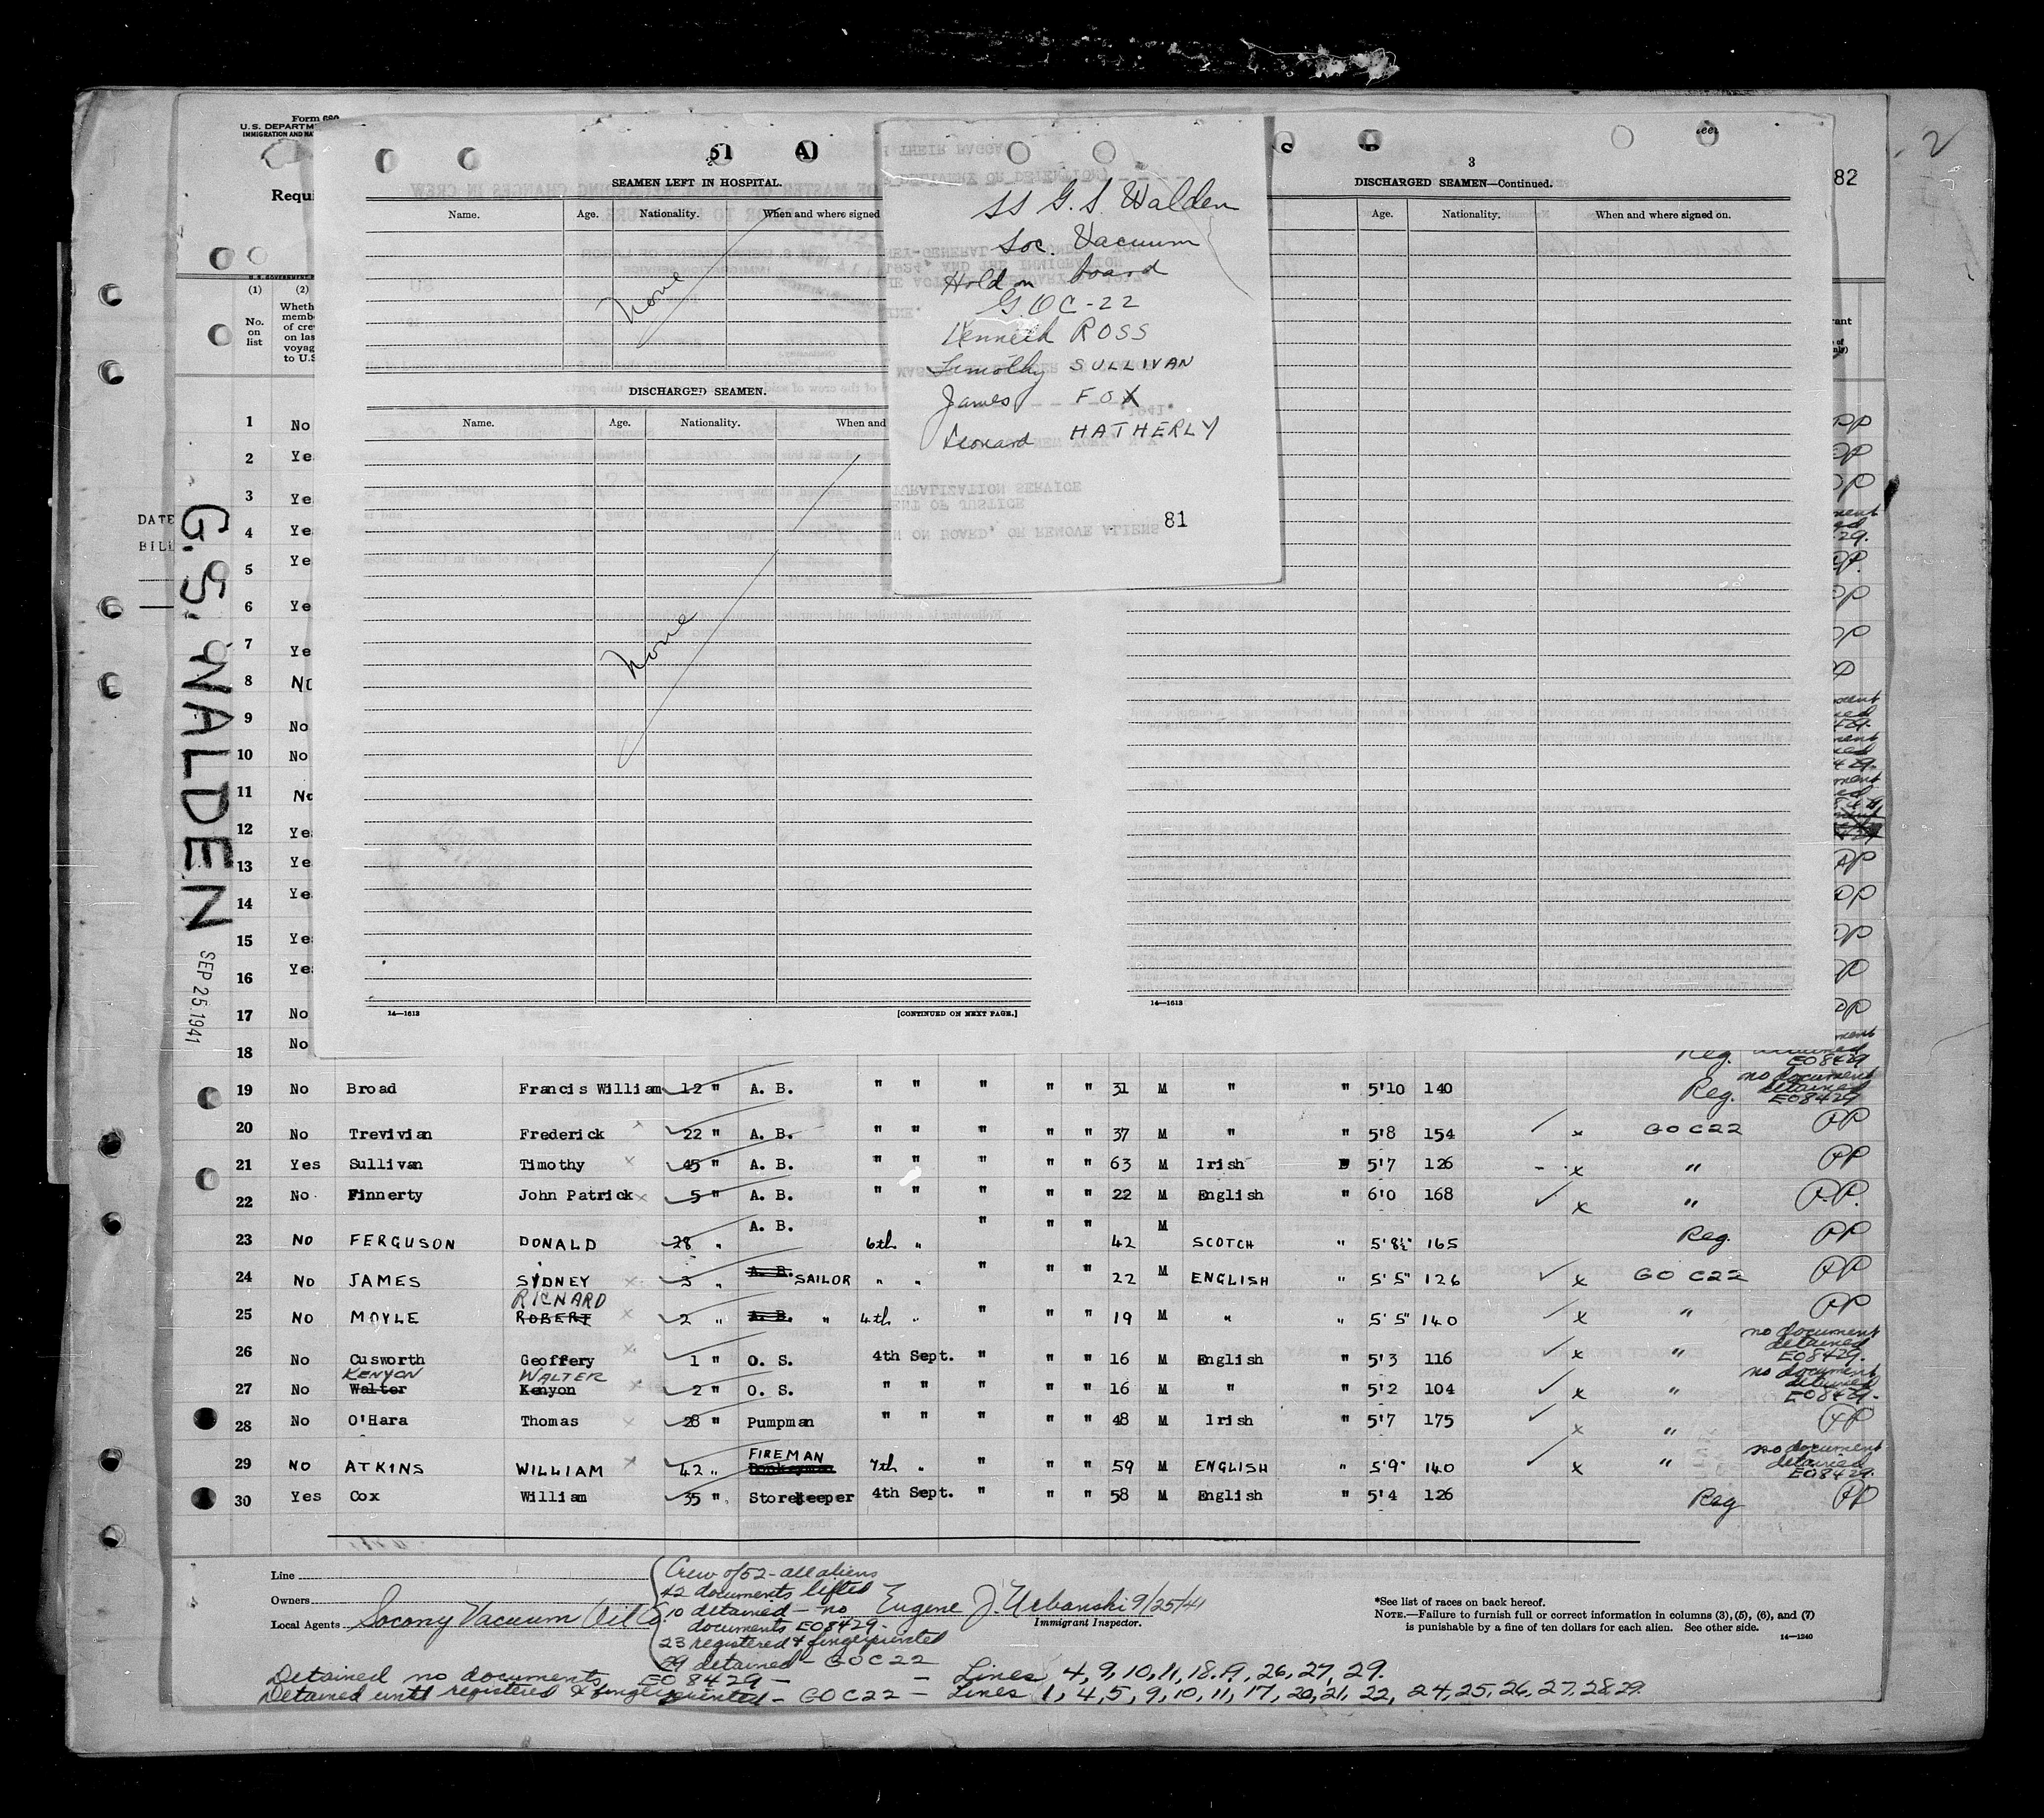 Form 680
U.S. DEPARTM
IMMIGRATION AND NA
Requi
51 A
2
SEAMEN LEFT IN HOSPITAL.
Name. Age. Nationality. When and where signed
None
DISCHARGED SEAMEN.
Name. Age. Nationality. When and
None
14—1613 [CONTINUED ON NEXT PAGE.]
SS G. S. Walden
Soc. Vacuum
Hold on board
G O C - 22
Kenneth ROSS
Timothy SULLIVAN
James FOX
Leonard HATHERLY
81
3
DISCHARGED SEAMEN—Continued.
Age. Nationality. When and where signed on.
14—1613
2
82
DATE
BILL
G. S. WALDEN
SEP 25 1941
(1) (2)
No. on list
Wheth
memb
of cre
on las
voyag
to U.S
1 No
2 Ye
3 Ye
4 Ye
5 Ye
6 Ye
7 Ye
8 No
9 No
10 No
11 No
12 Ye
13 Ye
14 Ye
15 Ye
16 Ye
17 No
18 No Reg. detained EO8429
19 No Broad Francis William 12 " A. B. " " " " " 31 M " " 5'10 140 Reg. no document detained EO8429
20 No Trevivian Frederick x 22 " A. B. " " " " " 37 M " " 5'8 154 x GOC22 PP
21 Yes Sullivan Timothy x 45 " A. B. " " " " " 63 M Irish " 5'7 126 - x " PP
22 No Finnerty John Patrick x 5 " A. B. " " " " " 22 M English " 6'0 168 x " P.P.
23 No FERGUSON DONALD 28 " A. B. 6th " " " " 42 M SCOTCH " 5'8½" 165 Reg. PP
24 No JAMES SYDNEY x 3 " A. B. SAILOR " " " " " 22 M ENGLISH " 5'5" 126 x GOC22 PP
25 No MOYLE RICHARD ROBERT x 2 " A. B. " 4th " " " " 19 M " " 5'5" 140 x " PP
26 No Cusworth Geoffery x 1 " O. S. 4th Sept. " " " 16 M English " 5'3 116 x " no document detained EO8429.
27 No KENYON Walter WALTER Kenyon x 2 " O. S. " " " " " 16 M " " 5'2 104 x " no document detained EO8429.
28 No O'Hara Thomas x 28 " Pumpman " " " " " 48 M Irish " 5'7 175 x " PP
29 No ATKINS WILLIAM x 42 " FIREMAN Donkeyman 7th " " " " 59 M ENGLISH " 5'9" 140 x " no document detained EO8429.
30 Yes Cox William 35 " Storekeeper 4th Sept. " " " 58 M English " 5'4 126 Reg PP
Line
Owners
Local Agents Socony Vacuum Oil Co.
Crew of 52 - all aliens
42 documents lifted
10 detained - no
documents EO8429.
23 registered & fingerprinted
29 detained - GOC22
Eugene J. Urbanski 9/25/41
Immigrant Inspector.
*See list of races on back hereof.
NOTE.—Failure to furnish full or correct information in columns (3), (5), (6), and (7)
is punishable by a fine of ten dollars for each alien. See other side.
14—1240
Detained no documents EO 8429 - - Lines 4, 9, 10, 11, 18, 19, 26, 27, 29.
Detained until registered & fingerprinted - GOC22 - Lines 1, 4, 5, 9, 10, 11, 17, 20, 21, 22, 24, 25, 26, 27, 28, 29.